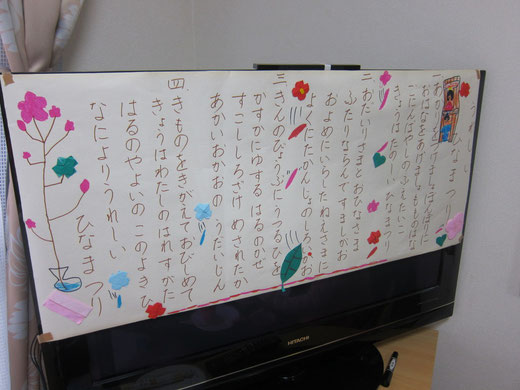 うれしい
ひなまつり
一 あかりをつけましょぼんぼりに
おはなをあげましょもものはな
ごにんばやしのふえたいこ
きょうはたのしいひなまつり
二 おだいりさまとおひなさま
ふたりならんですましがお
およめにいらしたねえさまに
よくにたかんじょのしろいかお
三 きんのびょうぶにうつるひを
かすかにゆするはるのかぜ
すこししろざけ めされたか
あかいおかおの うだいじん
四 きものをきがえておびしめて
きょうはわたしのはれすがた
はるのやよいのこのよきひ
なによりうれしい ひなまつり
HITACHI